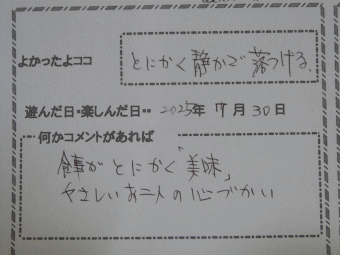 よかったよココ
とにかく静かで落つける。
遊んだ日・楽しんだ日・・ 2025年 7月 30日
何かコメントがあれば
食事がとにかく"美味"
やさしいお二人の心づかい